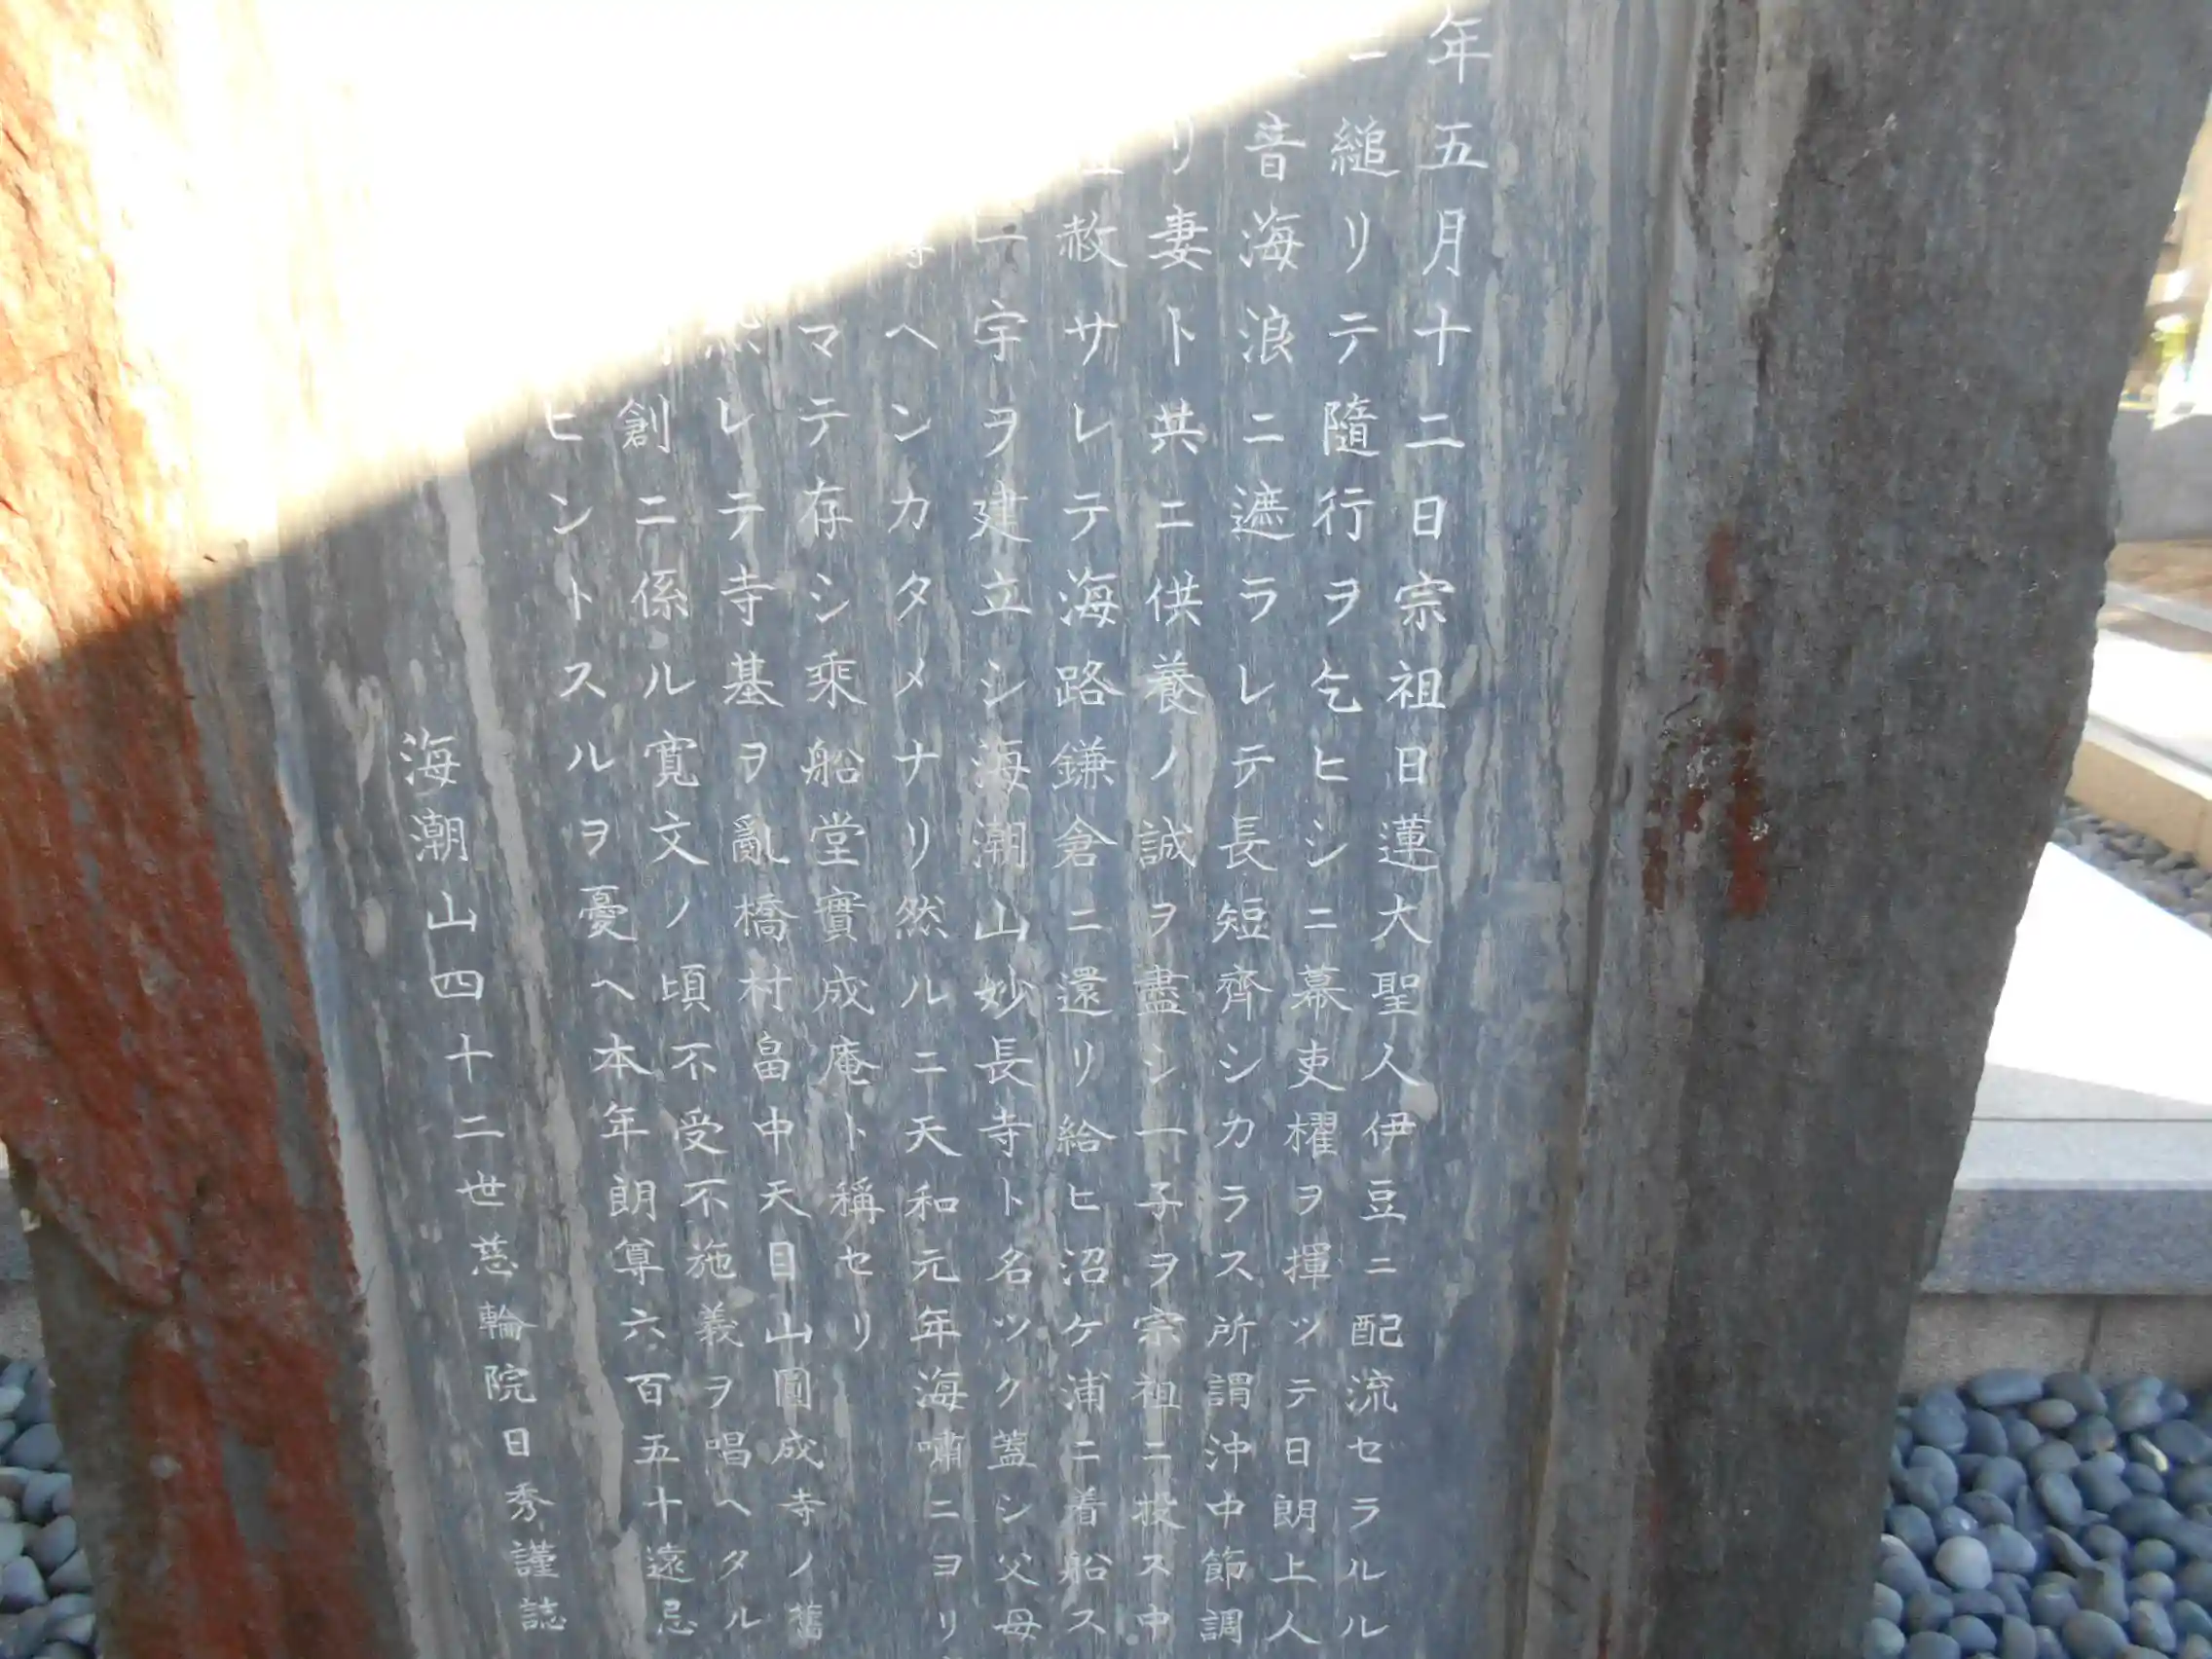 年五月十二日宗祖日蓮大聖人伊豆ニ配流セラルル
ニ縋リテ隨行ヲ乞ヒシニ幕吏櫂ヲ揮ッテ日朗上人
音海浪ニ遮ラレテ長短齊シカラス所謂沖中節調
リ妻ト共ニ供養ノ誠ヲ盡シ一子ヲ宗祖ニ投ス中
赦サレテ海路鎌倉ニ還リ給ヒ沼ケ浦ニ着船ス
一宇ヲ建立シ海潮山妙長寺ト名ツク蓋シ父母
ヘンカタメナリ然ルニ天和元年海嘯ニヨリ
マテ存シ乘船堂實成庵ト稱セリ
レテ寺基ヲ亂橋村畠中天目山圓成寺ノ舊
創ニ係ル寛文ノ頃不受不施義ヲ唱ヘタル
ヒントスルヲ憂ヘ本年朗尊六百五十遠忌
海潮山四十二世慈輪院日秀謹誌